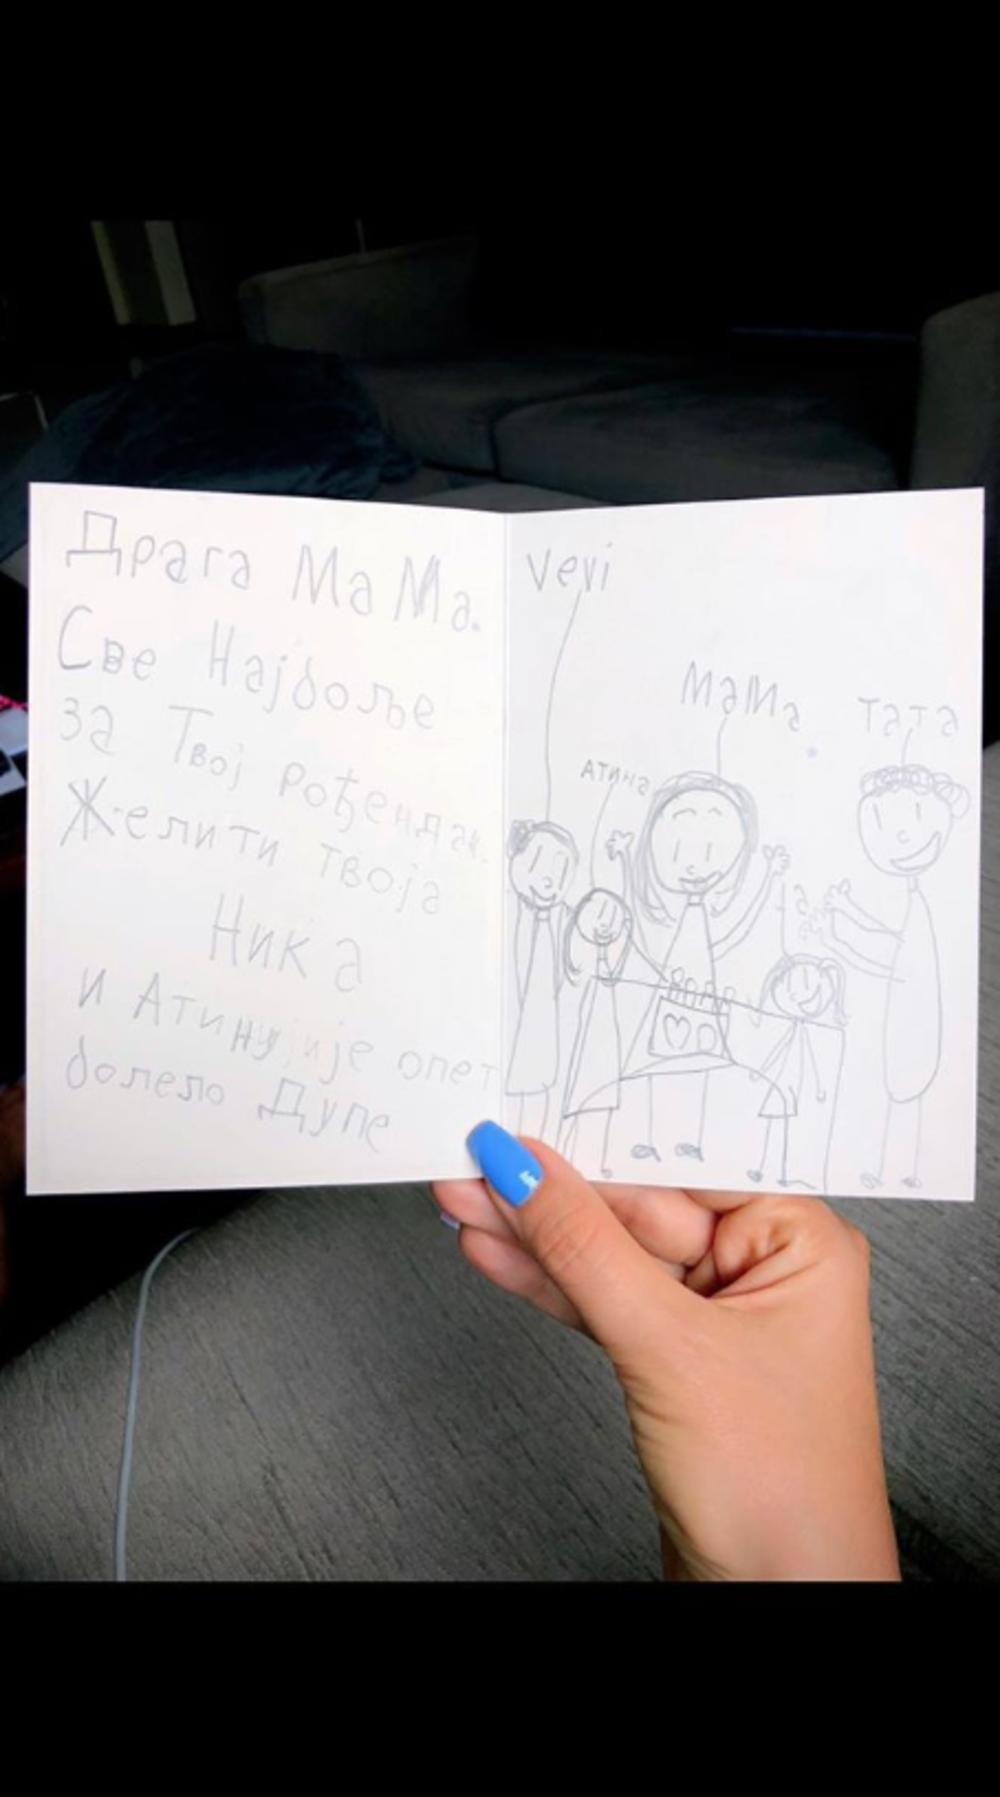 Драга МаМа.
Све Најбоље
за Твој рођендан.
Жели ти твоја
Ника
и Атину је опет
болело Дупе
vevi
МаМа
Тата
Атина
ја